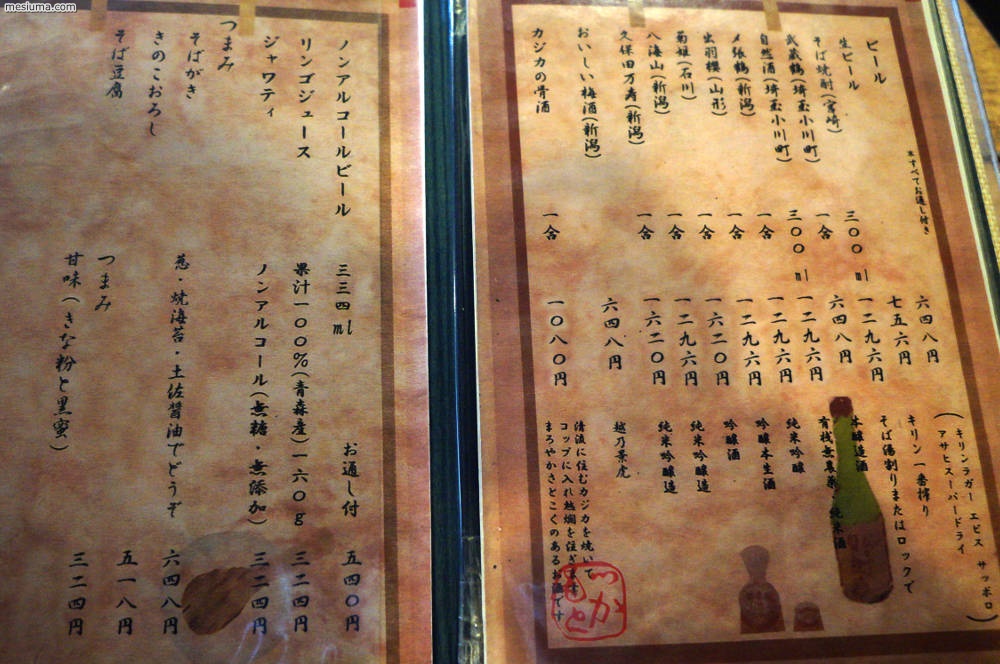 mesiuma.com
※すべてお通し付き
ビール 六四八円 (キリンラガー エビス サッポロ
アサヒスーパードライ)
生ビール 七五六円 キリン一番搾り
そば焼酎(宮崎) 三〇〇ml 一二九六円 そば湯割りまたはロックで
武蔵鶴(埼玉小川町) 一合 六四八円 本醸造酒
自然酒(埼玉小川町) 三〇〇ml 一二九六円 有機無農薬・純米酒
〆張鶴(新潟) 一合 一二九六円 純米吟醸
出羽櫻(山形) 一合 一二九六円 吟醸本生酒
菊姫(石川) 一合 一六二〇円 吟醸酒
八海山(新潟) 一合 一二九六円 純米吟醸造
久保田万寿(新潟) 一合 一六二〇円 純米吟醸造
おいしい梅酒(新潟) 六四八円 越乃景虎
カジカの骨酒 一合 一〇八〇円 清流に住むカジカを焼いて
コップに入れ熱燗を注ぎます
まろやかさとこくのあるお酒です
ノンアルコールビール 三三四ml お通し付 五四〇円
リンゴジュース 果汁一〇〇%(青森産)一六〇g 三二四円
ジャワティ ノンアルコール(無糖・無添加) 三二四円
つまみ
そばがき 葱・焼海苔・土佐醤油でどうぞ 六四八円
きのこおろし つまみ 五一八円
そば豆腐 甘味(きな粉と黒蜜) 三二四円